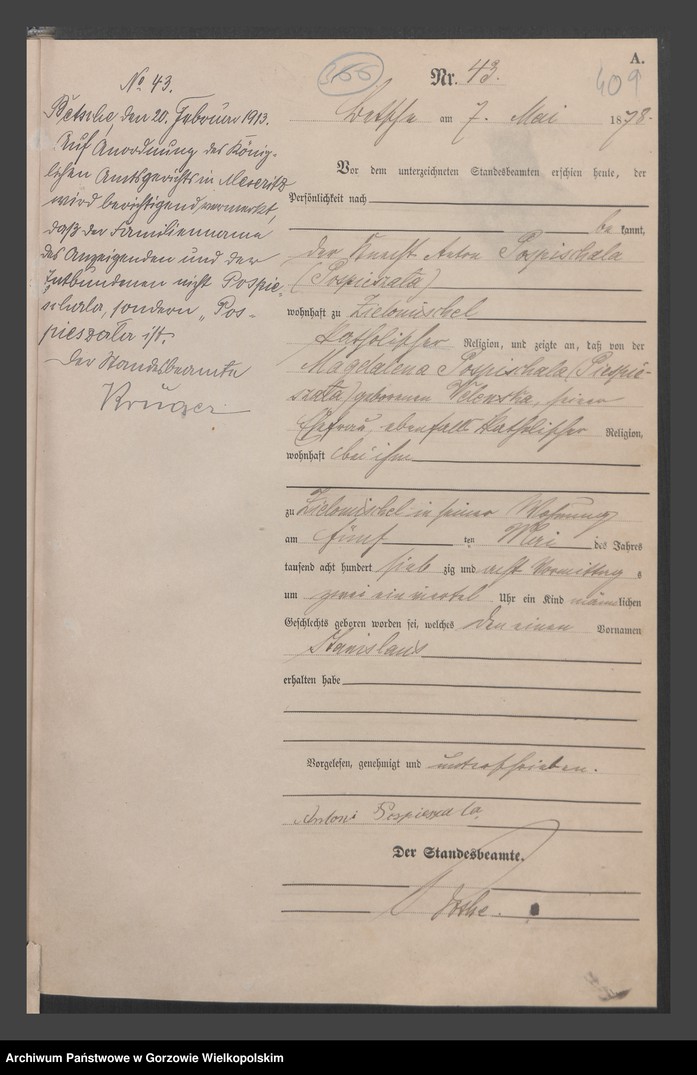 A.
No 43.
Betsche, den 20. Februar 1913.
Auf Anordnung des König-
lichen Amtsgerichts in Meseritz
wird berichtigend vermerkt,
daß der Familienname
des Anzeigenden und der
Entbundenen nicht Pospie-
schala, sondern „Pos-
pieszała ist.
Der Standesbeamte
Krüger
366
409
Nr. 43.
Betsche am 7. Mai 1878.
Vor dem unterzeichneten Standesbeamten erschien heute, der
Persönlichkeit nach
be kannt,
der Knecht Anton Pospischala
(Pospieszała)
wohnhaft zu Zielomischel
katholischer Religion, und zeigte an, daß von der
Magdalena Pospischala (Pospie-
szała) geborenen, seiner
Ehefrau, ebenfalls katholischer Religion,
wohnhaft bei ihm
zu Zielomischel in seiner Wohnung
am fünf ten Mai des Jahres
tausend acht hundert sieb zig und acht Vormittag s
um zwei ein viertel Uhr ein Kind männlichen
Geschlechts geboren worden sei, welches den einen Vornamen
Stanislaus
erhalten habe
Vorgelesen, genehmigt und unterschrieben.
Antoni Pospieszała
Der Standesbeamte.